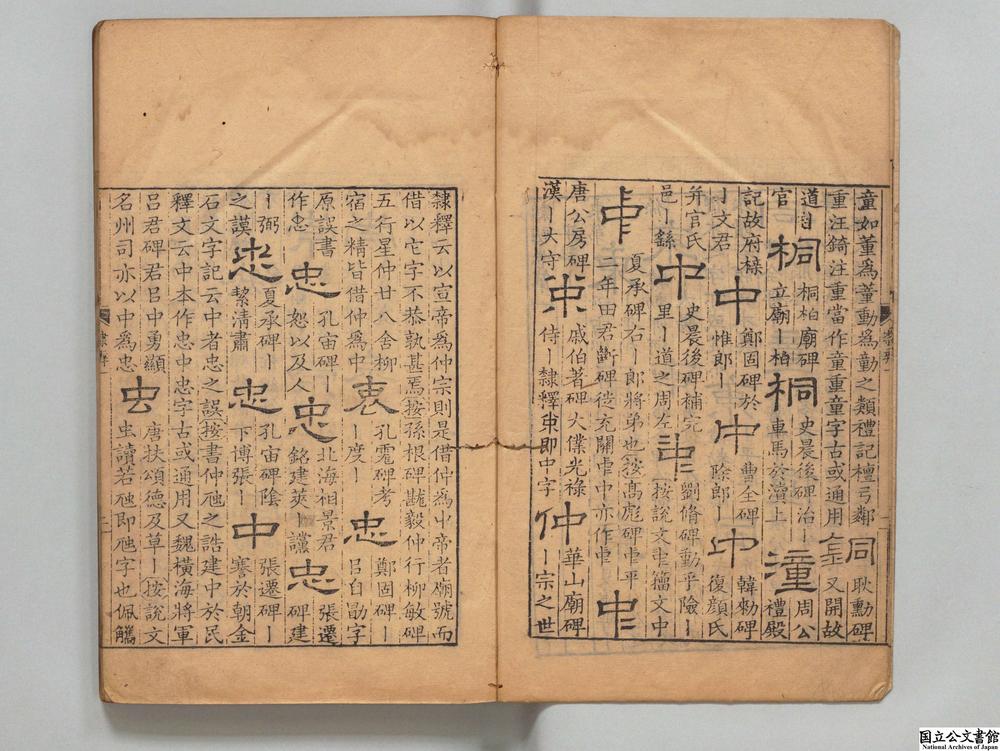 童如董爲蕫動爲勭之類禮記檀弓鄰
重汪錡注重當作童重童字古或通用
同
耿勳碑
又開故
道—
官
桐
桐柏廟碑
立廟—柏
桐
史晨後碑治—
車馬於瀆上
潼
周公
禮殿
記故府椽
—文君
中
鄭固碑於
惟郎—
中
曹全碑
除郎—
中
韓勑碑
復顏氏
并官氏
邑—繇
中
史晨後碑補完
里—道之周左
中
劉脩碑動乎險—
按說文中籀文中
中
夏承碑右—郎將弟也按高彪碑中平
二年田君斷碑從充關中中亦作中
中
唐公房碑
漢—大守
中
戚伯著碑大僕光祿
侍—隸釋中即中字
仲
華山廟碑
—宗之世
隸釋云以宣帝爲仲宗則是借仲爲中帝者廟號而
借以它字不恭孰甚焉按孫根碑戡毅仲行柳敏碑
五行星仲廿八舍柳
宿之精皆借仲爲中
衷
孔宙碑考
—度—
忠
鄭固碑—
呂白勖字
原誤書
作忠
忠
孔宙碑—
恕以及人
忠
北海相景君
銘建莢—讜
忠
張遷
碑建
—弼
之謨
忠
夏承碑—
絜清肅
忠
孔宙碑陰
下博張—
中
張遷碑—
謇於朝金
石文字記云中者忠之誤按書仲虺之誥建中於民
釋文云中本作忠中忠字古或通用又魏橫海將軍
呂君碑君呂中勇顯
名州司亦以中爲忠
虫
唐扶頌德及草—按說文
虫讀若虺即虺字也佩觿
国立公文書館
National Archives of Japan